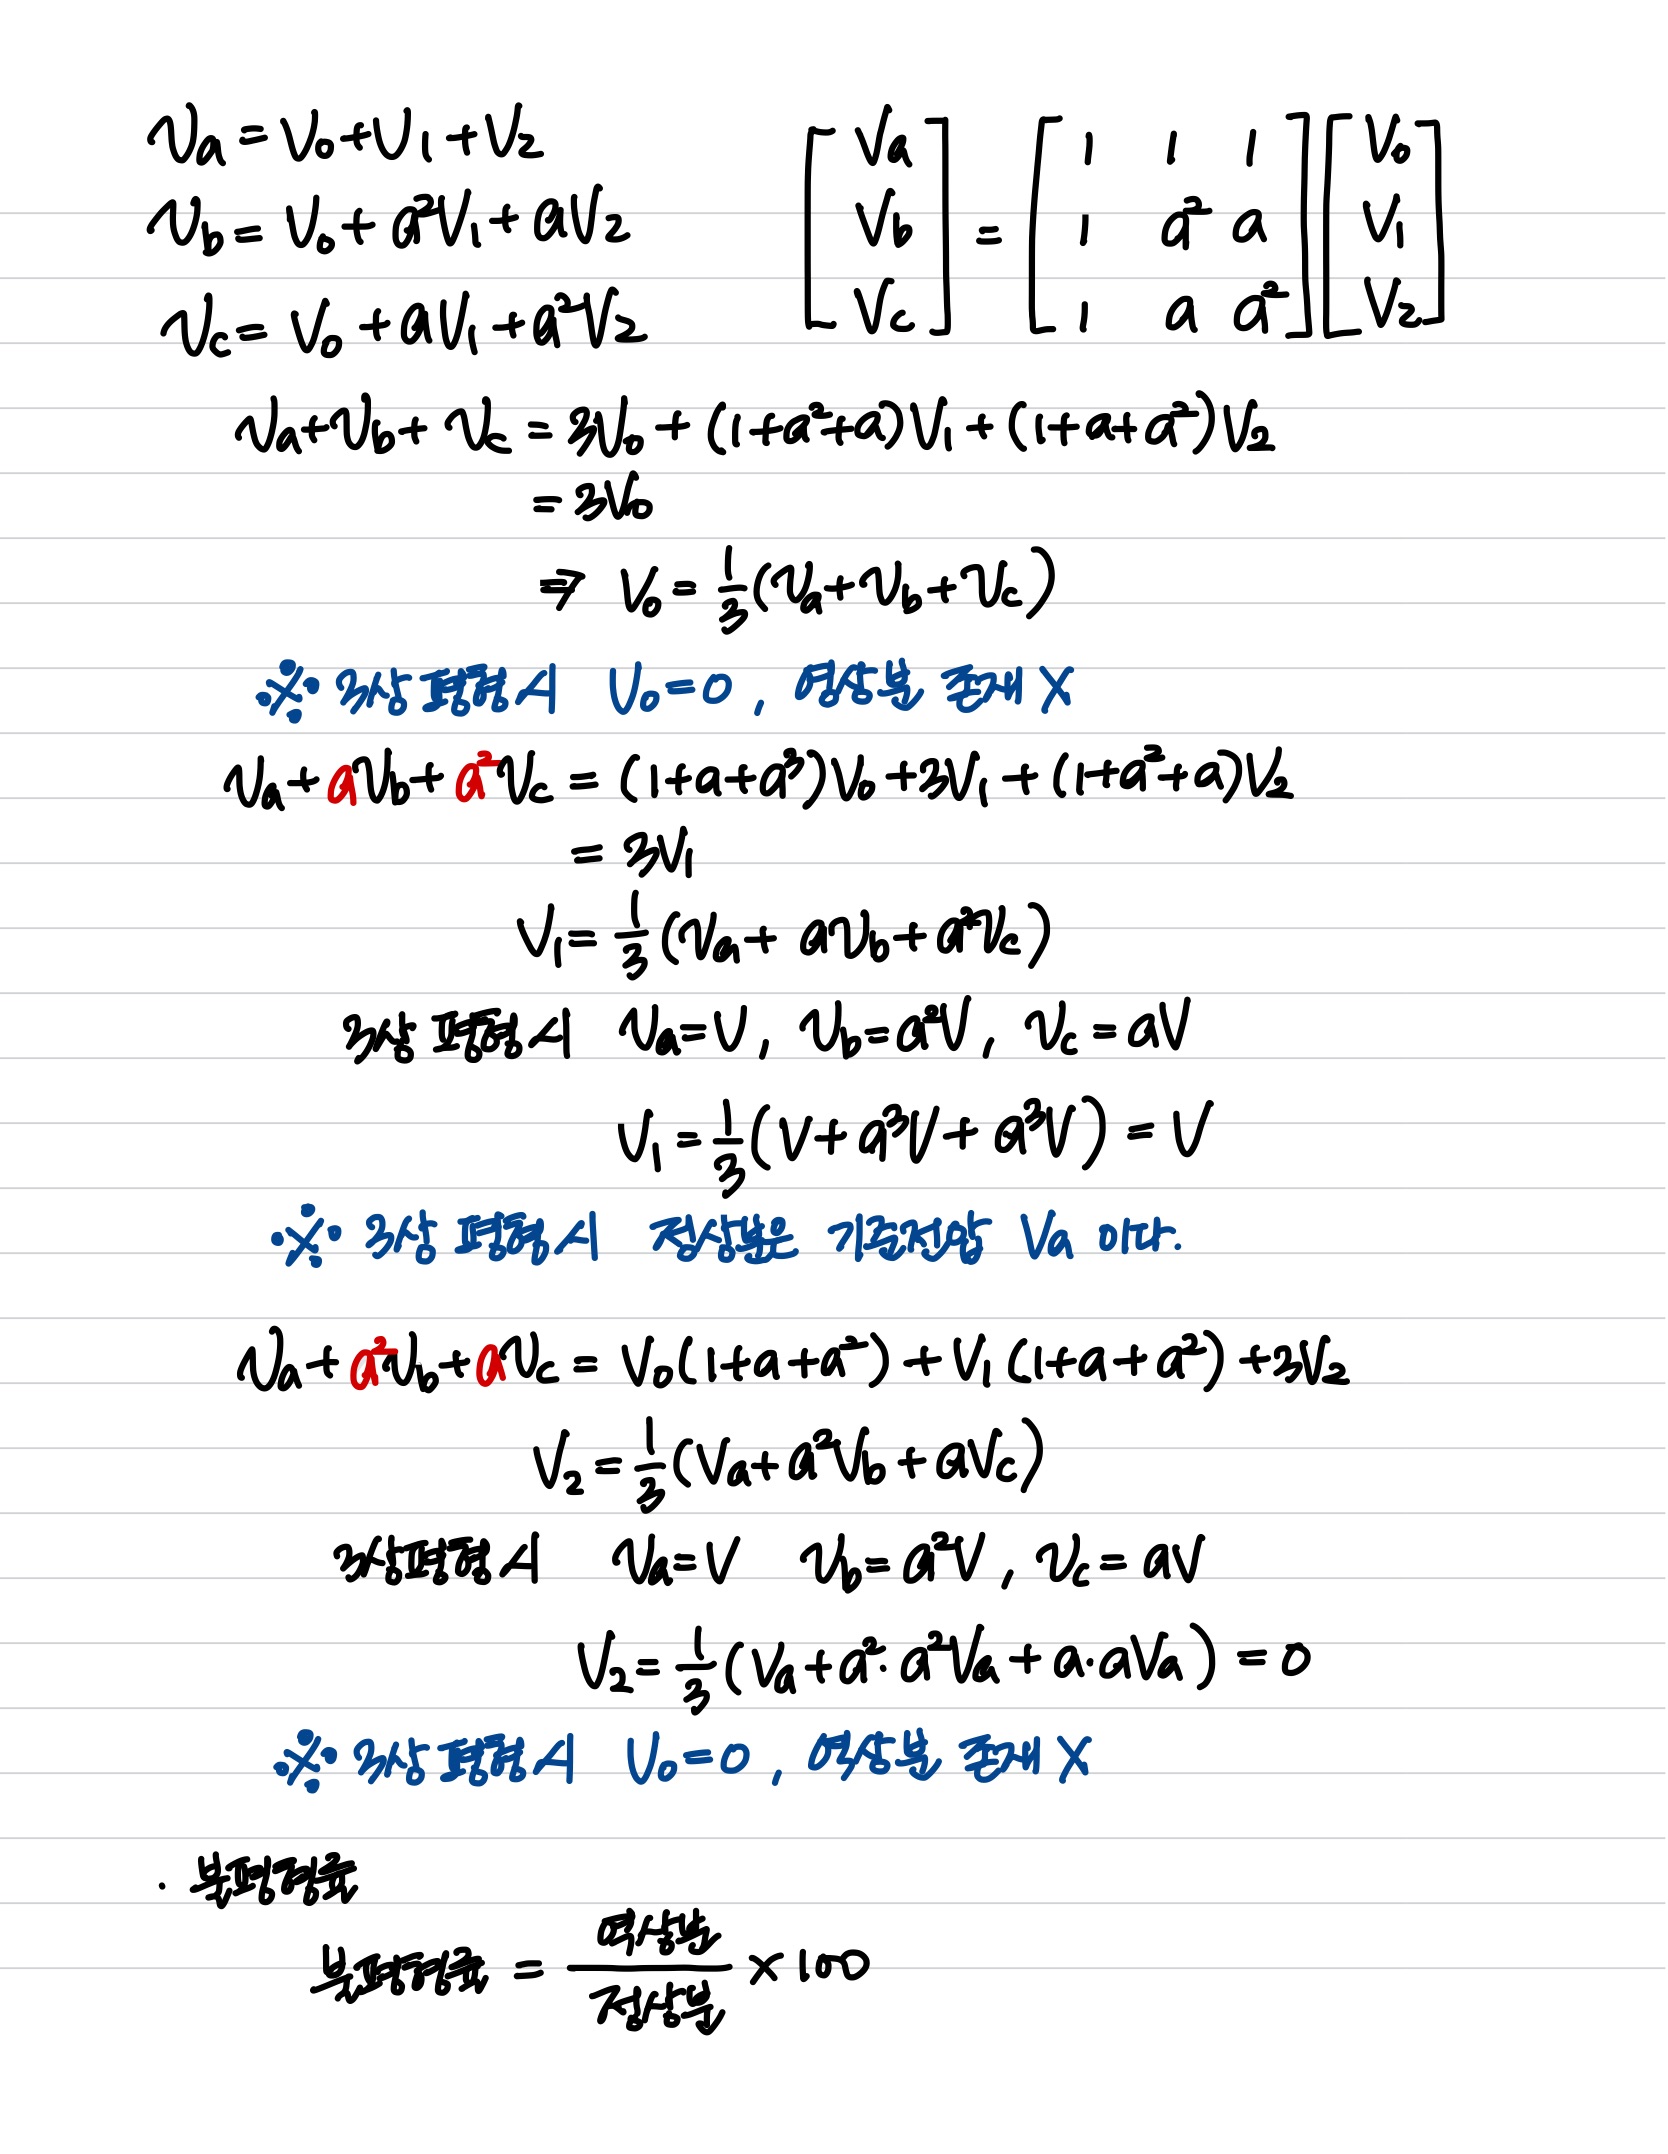 Va = V₀ + V₁ + V₂
Vb = V₀ + a²V₁ + aV₂
Vc = V₀ + aV₁ + a²V₂
[Va Vb Vc] = [1 1 1; 1 a² a; 1 a a²] [V₀ V₁ V₂]
Va + Vb + Vc = 3V₀ + (1+a²+a)V₁ + (1+a+a²)V₂
= 3V₀
⇒ V₀ = 1/3 (Va + Vb + Vc)
※ 3상 평형시 V₀ = 0 , 영상분 존재 X
Va + aVb + a²Vc = (1+a+a³)V₀ + 3V₁ + (1+a²+a)V₂
= 3V₁
V₁ = 1/3 (Va + aVb + a²Vc)
3상 평형시 Va = V, Vb = a²V, Vc = aV
V₁ = 1/3 (V + a³V + a³V) = V
※ 3상 평형시 정상분은 기준전압 Va 이다.
Va + a²Vb + aVc = V₀(1+a+a²) + V₁(1+a+a²) + 3V₂
V₂ = 1/3 (Va + a²Vb + aVc)
3상평형시 Va = V Vb = a²V, Vc = aV
V₂ = 1/3 (Va + a²·a²Va + a·aVa) = 0
※ 3상 평형시 V₀ = 0 , 역상분 존재 X
· 불평형률
불평형률 = 역상분/정상분 × 100